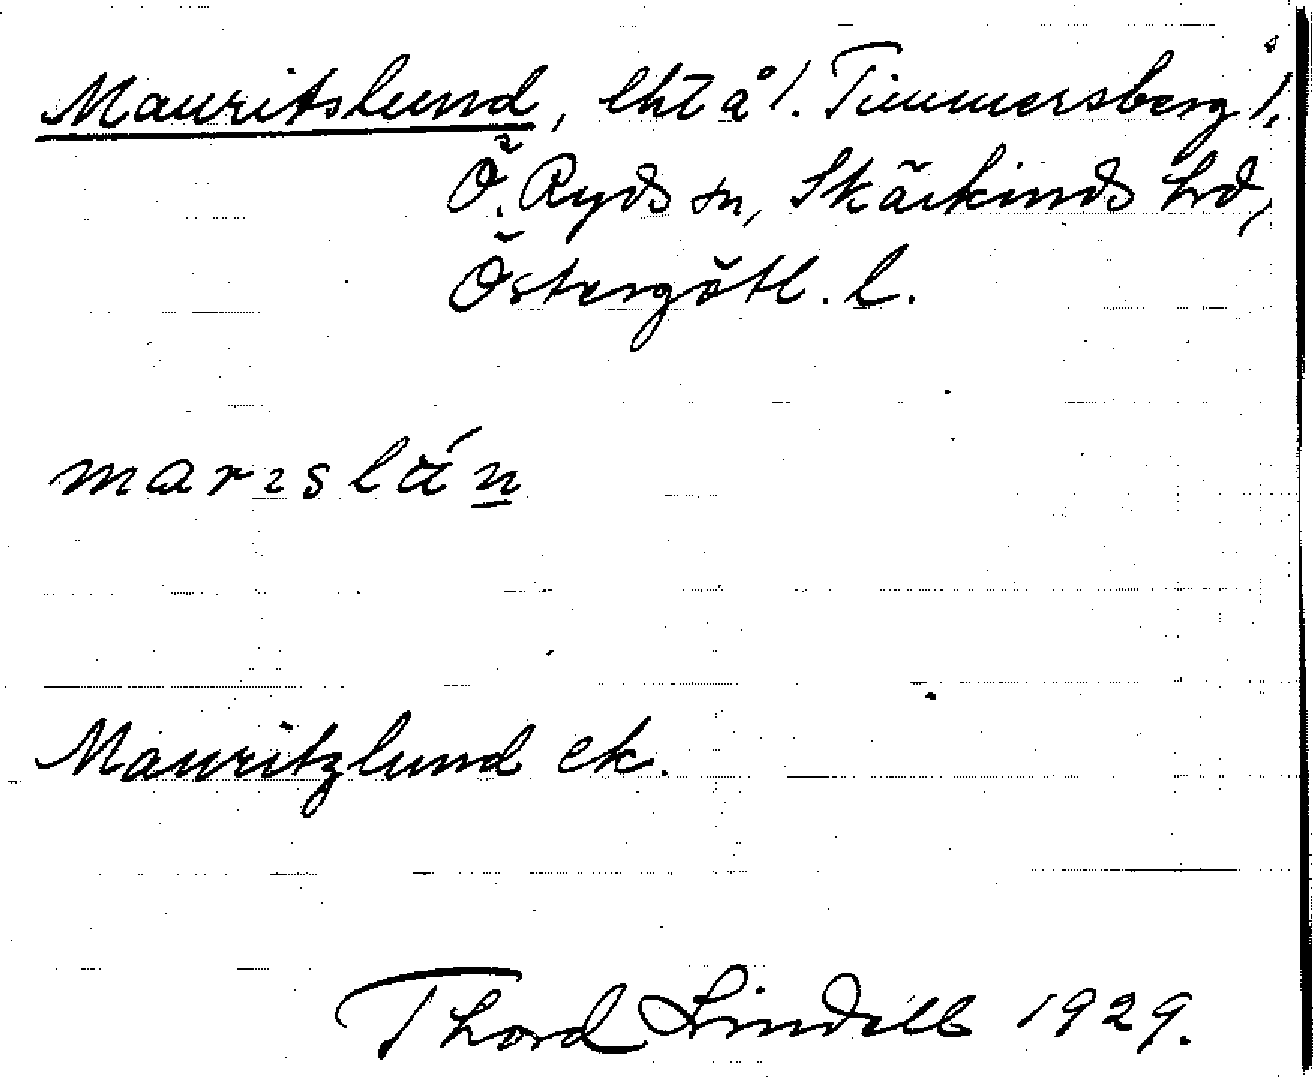 Mauritslund, lht å 1. Timmersberg 1,
Ö. Ryds sn, Skärkinds hd,
Östergötl. l.
marɪslún
Mauritzlund ek.
Thord Lindell 1929.